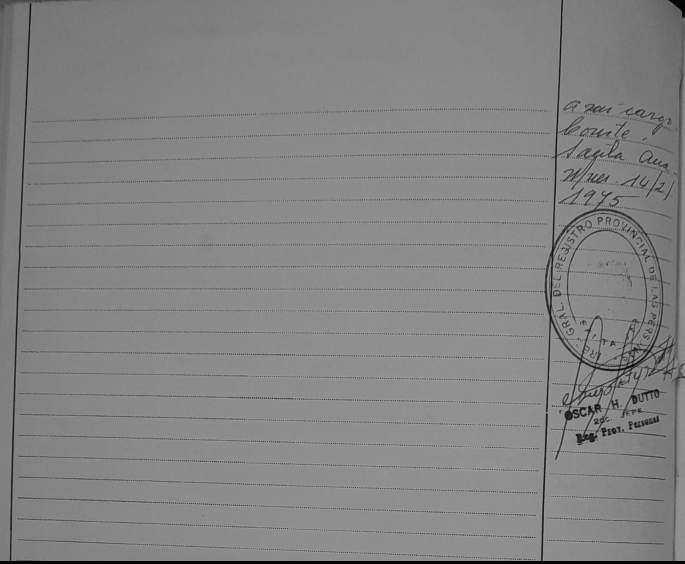 a mi cargo.
Conste.
Sagita Ana
14/2/
1975
GRAL. DEL REGISTRO PROVINCIAL DE LAS PERS
SALTA
OSCAR H. DUTTO
2do. JEFE
Reg. Prov. Personas